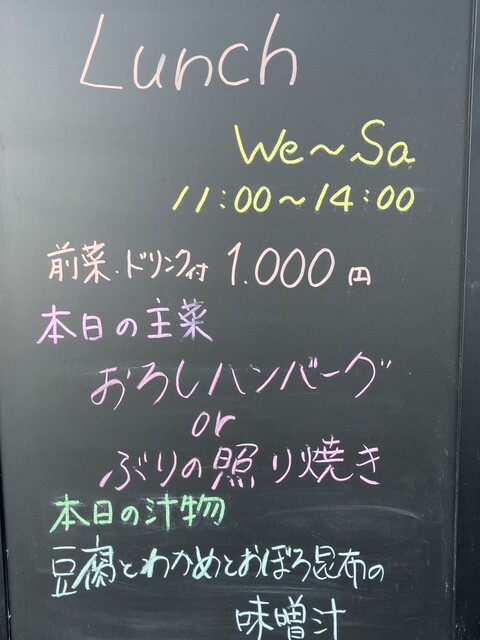 Lunch
We～Sa
11:00～14:00
前菜・ドリンク付 1.000円
本日の主菜
おろしハンバーグ
or
ぶりの照り焼き
本日の汁物
豆腐とわかめとおぼろ昆布の
味噌汁